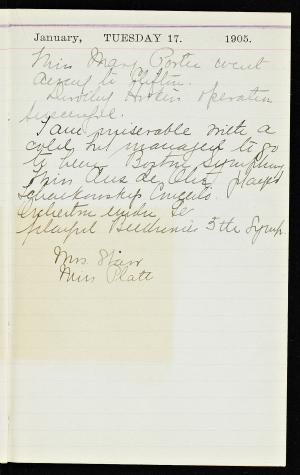 January, TUESDAY 17. 1905.
Miss Mary Porter went
away to
operation
successful.
I am miserable with a
cold, but managed to go
to hear Boston Symphony
Miss Aus der Ohe played
Tschaikowsky's Concerto.
Orchestra under
played Beethoven's 5th Symph.
Mrs.
Mrs Platt